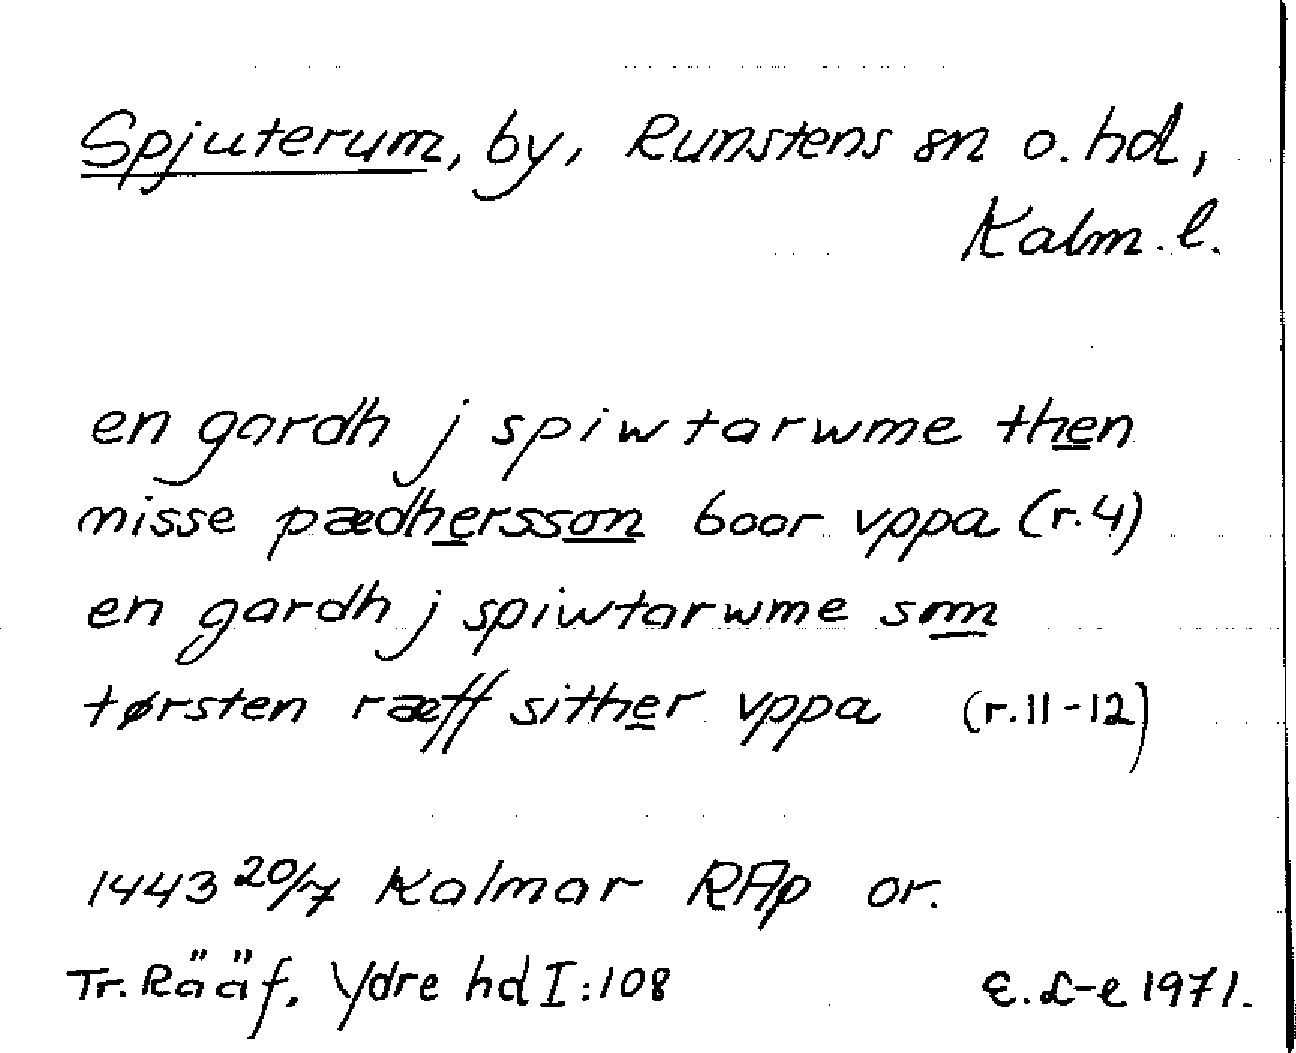 Spjuterum, by, Runstens sn o. hd,
Kalm. l.
en gardh j spiwtarwme then
nisse pædhersson boor vppa (r.4)
en gardh j spiwtarwme som
tørsten ræff sither vppa (r.11-12)
1443 20/7 Kalmar RAp or.
Tr. Rääf, Ydre hd I:108 E. L-e 1971.